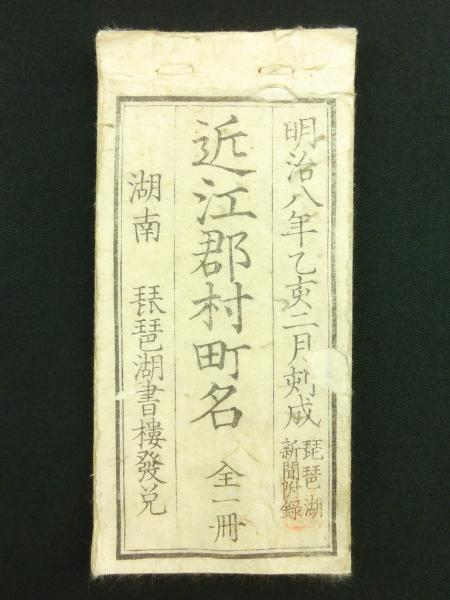 明治八年乙亥二月刻成
琵琶湖
新聞附録
近江郡村町名 全一冊
湖南 琵琶湖書樓發兌